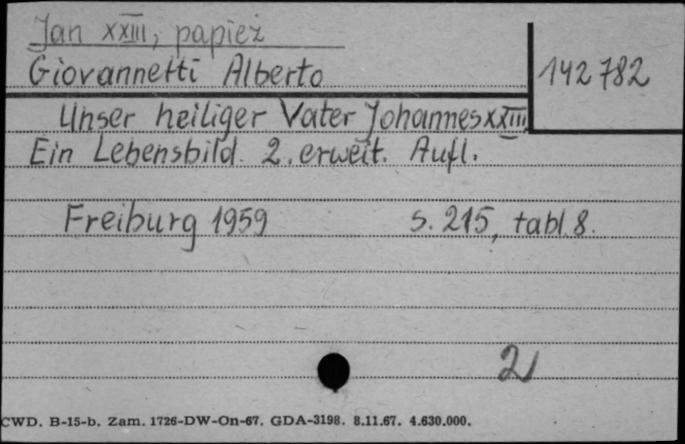 Jan XXIII, papież
Giovannetti Alberto
142 782
Unser heiliger Vater Johannes XXIII.
Ein Lebensbild. 2. erweit. Aufl.
Freiburg 1959 S. 215, tabl. 8.
2
CWD. B-15-b. Zam. 1726-DW-On-67. GDA-3198. 8.11.67. 4.630.000.